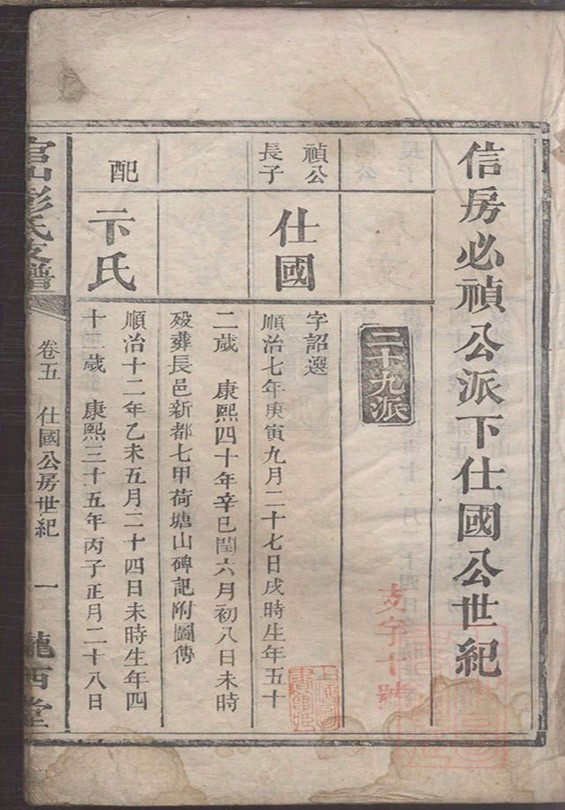 信房必禎公派下仕國公世紀
二十九派
禎公
長子
仕國
字詔選
順治七年庚寅九月二十七日戌時生年五十
二歲 康熙四十年辛巳閏六月初八日未時
歿葬長邑新都七甲荷塘山碑記附圖傳
配
卞氏
順治十二年乙未五月二十四日未時生年四
十二歲 康熙三十五年丙子正月二十八日
官山彭氏支譜
卷五 仕國公房世紀 一
隴西堂
支字十號